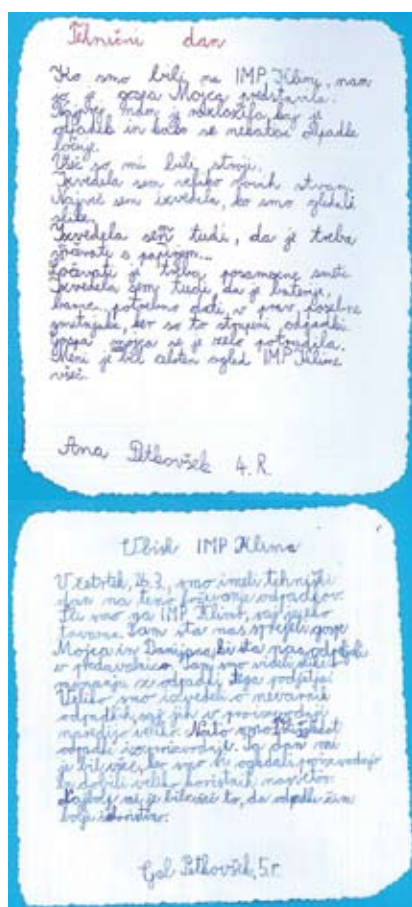 Tehnični dan
Ko smo bili na IMP Klimi, nam
jo je gospa Mojca predstavila.
Najprej nam je razložila kaj je
odpadek in kako se nekateri odpadki
ločijo.
Všeč so mi bili stroji.
Izvedela sem veliko novih stvari.
Največ sem izvedela, ko smo gledali
slike.
Izvedela sem tudi, da je treba
varčevati s papirjem...
Ločevati je treba posamezne smeti
Izvedela sem tudi, da je baterije,
barve, potrebno dati v prav posebne
smetnjake, ker so to strupeni odpadki
Gospa mojca se je zelo potrudila.
Meni je bil celoten ogled IMP Klime
všeč.
Ana Petkovšek 4. R.
Obisk IMP Klima
V četrtek, 26.3., smo imeli tehniški
dan na temo ločevanje odpadkov.
Šli smo na IMP Klimo, v njihovo
tovarno. Tam sta nas sprejeli gospe
Mojca in Damijana, ki sta nas odpeljali
v predavalnico. Tam smo videli slike
ravnanja z odpadki tega podjetja.
Veliko smo izvedeli o nevarnih
odpadkih, saj jih v proizvodnji
naredijo veliko. Nato smo šli gledat
odpadke iz proizvodnje. Ta dan mi
je bil všeč, ko smo si ogledali proizvodnjo
in dobili veliko koristnih nasvetov.
Najbolj mi je bilo všeč to, da odpadke čim
bolje izkoristijo.
Gal Petkovšek, 5.r.